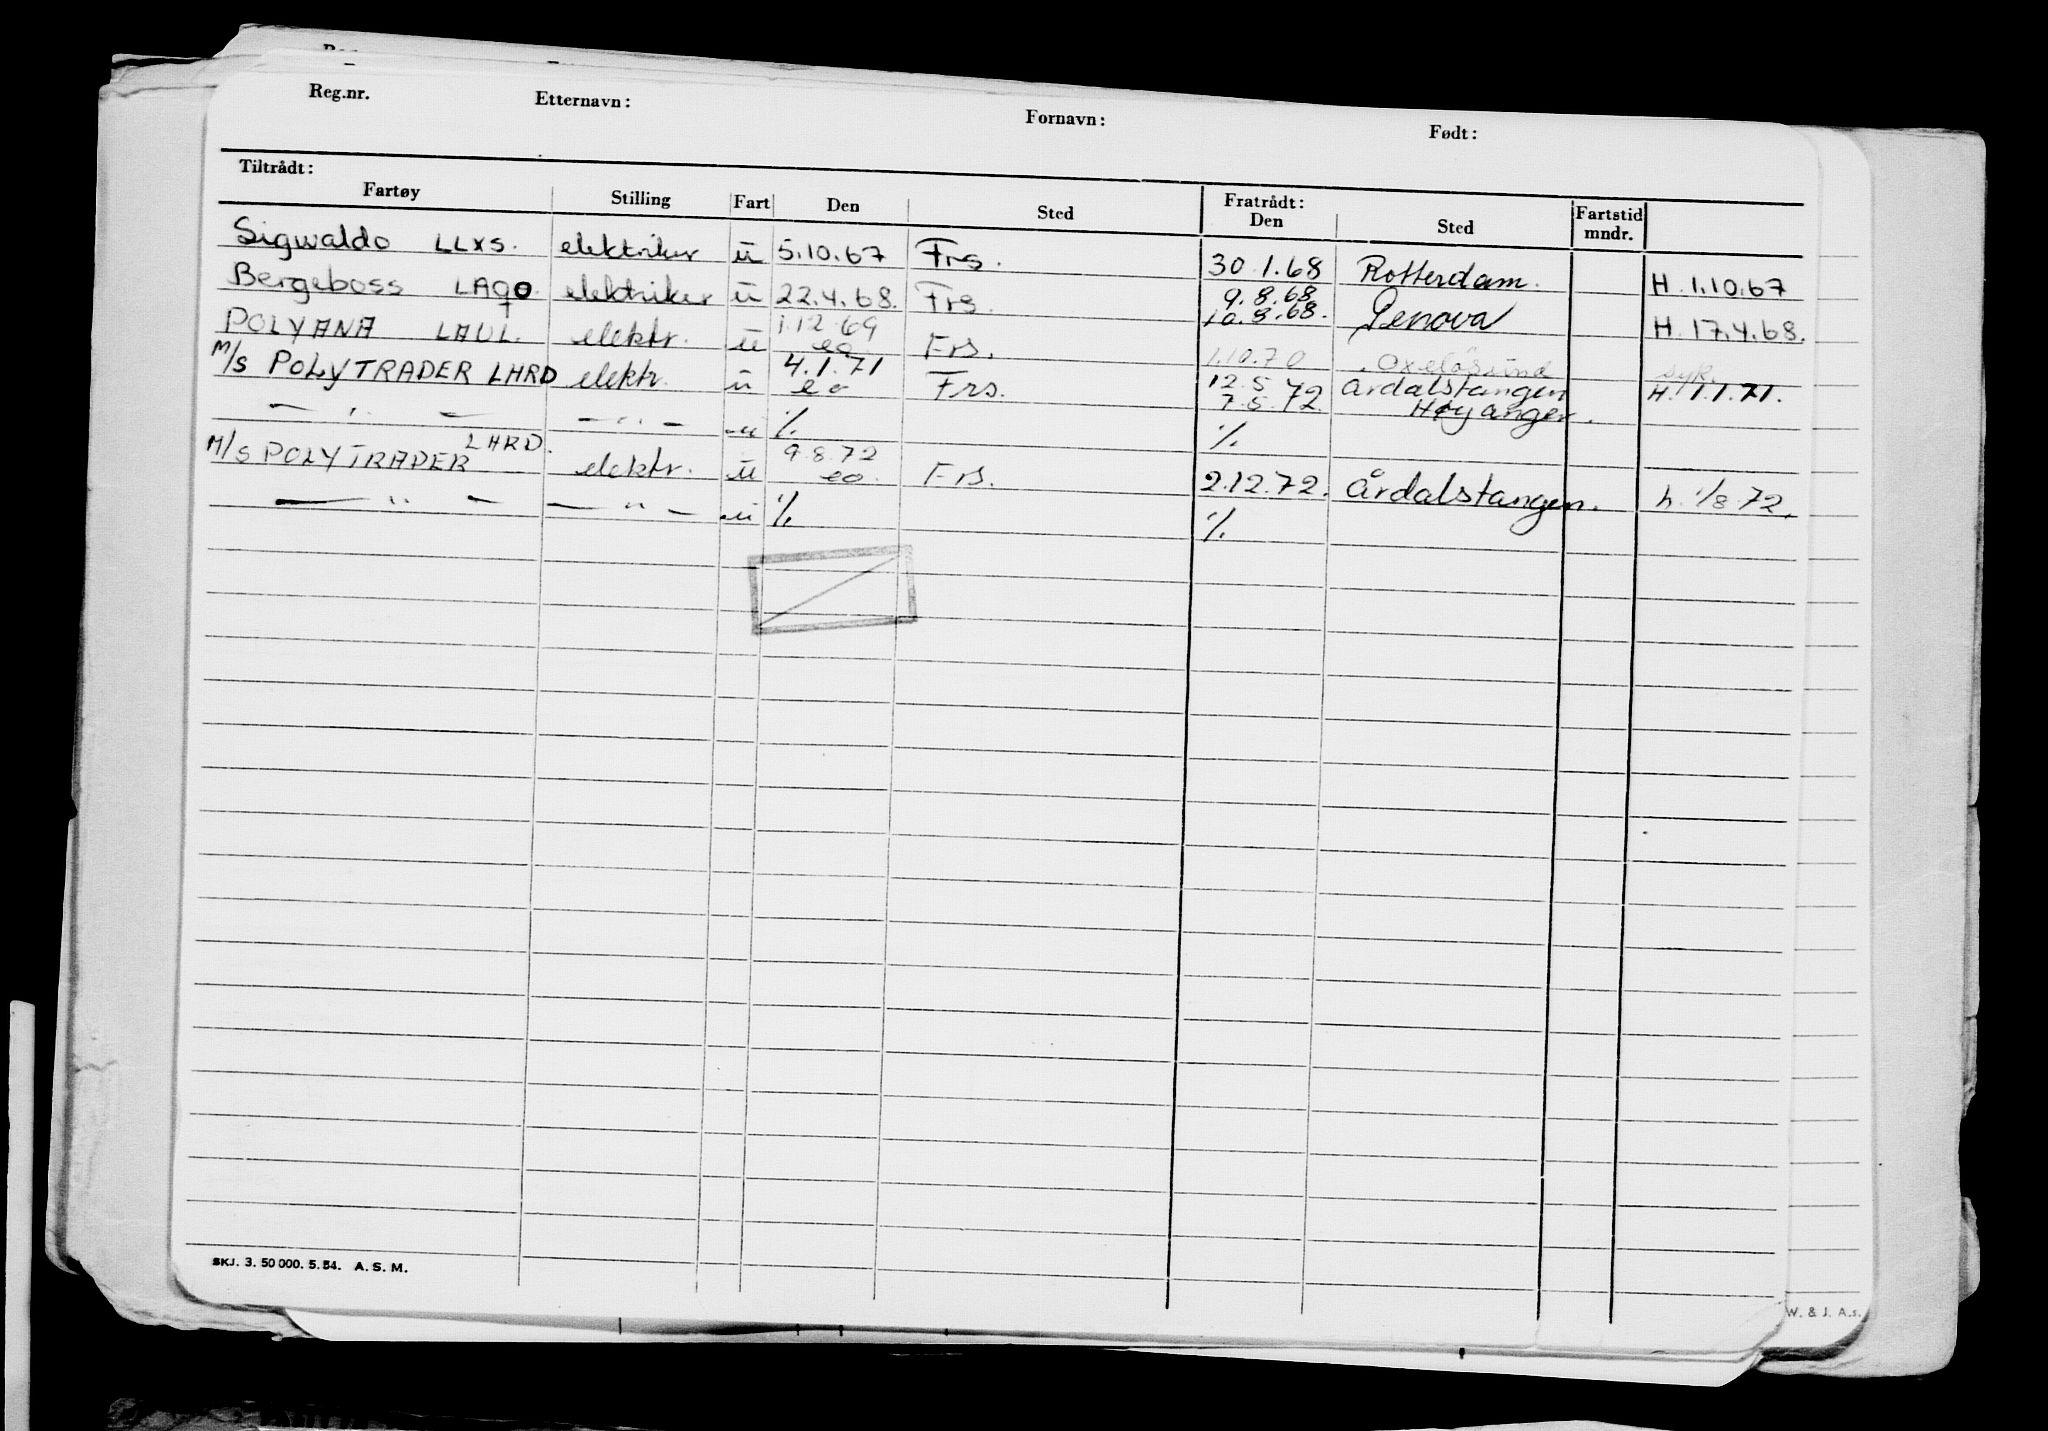 Reg.nr. Etternavn: Fornavn: Født:
Tiltrådt: Fratrådt:
Fartøy Stilling Fart Den Sted Den Sted Fartstid mndr.
Sigwaldo LLXS. elektriker u 5.10.67 Frs. 30.1.68 Rotterdam. H. 1.10.67
Bergeboss LAQO elektriker u 22.4.68. Frs. 9.8.68 10.8.68. Genova H. 17.4.68.
POLYANA LAUL. elektr. u 1.12.69 eo Frs. 1.10.70 Oxelösund syk.
M/S POLYTRADER LHRD elektr. u 4.1.71 eo Frs. 12.5.72 7.5.72. Årdalstangen Høyanger. H. 1.1.71.
— " — — " — u % %
M/S POLYTRADER LHRD. elektr. u 9.8.72 eo. Frs. 2.12.72. Årdalstangen. h. 1/8.72.
— " — — " — u % %
SKJ. 3. 50 000. 5. 54. A. S. M.
W. & J. A.s.